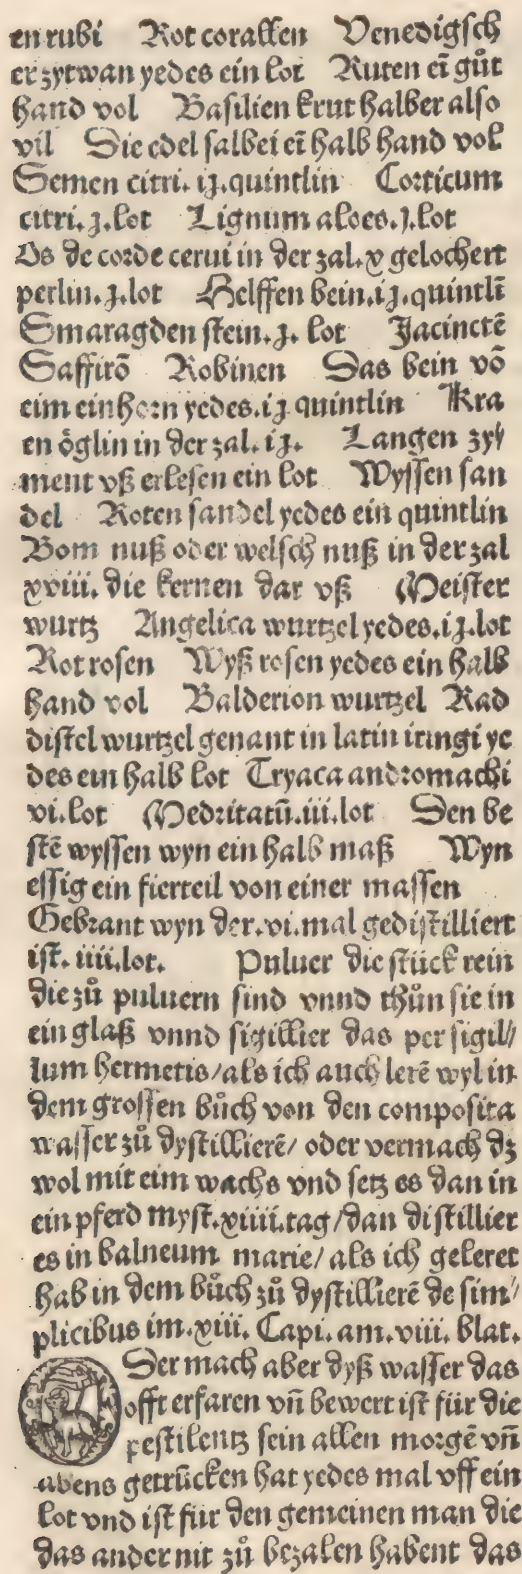 en rubi Rot corallen Venedigsch
er zytwan yedes ein lot Ruten eī gůt
hand vol Basilien krut halber also
vil Die edel salbei eī halb hand vol
Semen citri. ij. quintlin Corticum
citri. j. lot Lignum aloes. j. lot
Os de corde cerui in der zal. v gelochert
perlin. j. lot Helffen bein. ij. quintlī
Smaragden stein. j. lot Jacinctē
Saffirō Robinen Das bein vō
eim einhorn yedes. ij quintlin Kra
en öglin in der zal. ij. Langen zy/
ment vß erlesen ein lot Wyssen san
del Roten sandel yedes ein quintlin
Bom nuß oder welsch nuß in der zal
xviii. die kernen dar vß Meister
wurtz Angelica wurtzel yedes. ij. lot
Rot rosen Wyß rosen yedes ein halb
hand vol Balderion wurtzel Rad
distel wurtzel genant in latin iringi ye
des ein halb lot Tryaca andromachi
vi. lot Medritatū. iii. lot Den be
stē wyssen wyn ein halb maß Wyn
essig ein fierteil von einer massen
Gebrant wyn der. vi. mal gedistilliert
ist. iiii. lot. Puluer die stück rein
die zů puluern sind vnnd thůn sie in
ein glaß vnnd sigillier das per sigil/
lum hermetis/ als ich auch lerē wyl in
dem grossen bůch von den composita
wasser zů dystillierē/ oder vermach dz
wol mit eim wachs vnd setz es dan in
ein pferd myst. xiiii. tag/ dan distillier
es in balneum marie/ als ich geleret
hab in dem bůch zů dystillierē de sim/
plicibus im. xiii. Capi. am. viii. blat.
Der mach aber dyß wasser das
offt erfaren vñ bewert ist für die
pestilentz sein allen morgē vñ
abens getruͤcken hat yedes mal vff ein
lot vnd ist für den gemeinen man die
das ander nit zů bezalen habent das